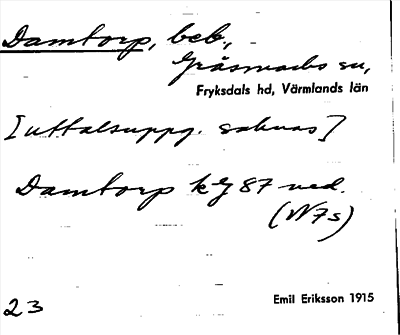 Damtorp, beb.,
Gräsmarks sn,
Fryksdals hd, Värmlands län
[uttalsuppg. saknas]
Damtorp kg 87 ned.
(N7s)
23
Emil Eriksson 1915